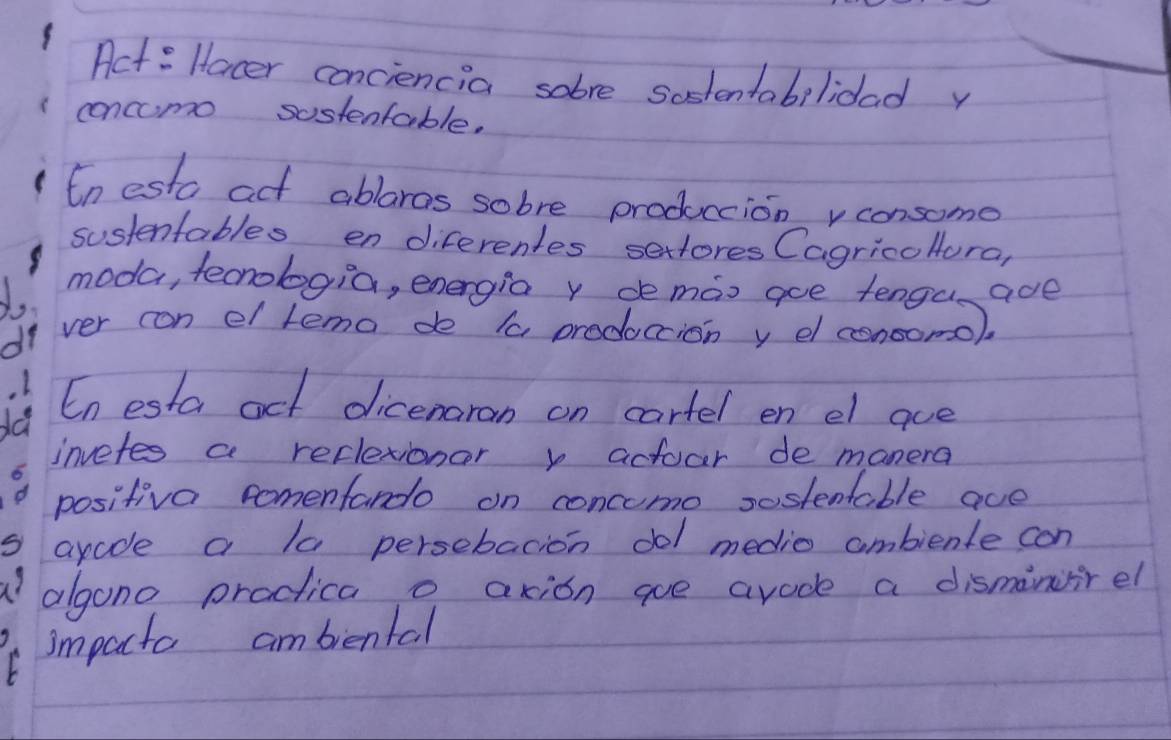 Act: Hacer conciencia sobre sustentabilidad y
concumo sustentable.
En esta act ablaras sobre producción y consumo
sustentables en diferentes sextores (agricoltura,
moda, tecnologia, energia y demás que tenga que
ver con el tema de la producción y el consumo).
En esta act dicenaran un cartel en el que
invetes a reflexionar y actuar de manera
positiva fomentando un concumo sostentable que
ayude a la persebación del medio ambiente con
alguna practica o axión que ayude a disminuir el
impacta ambiental